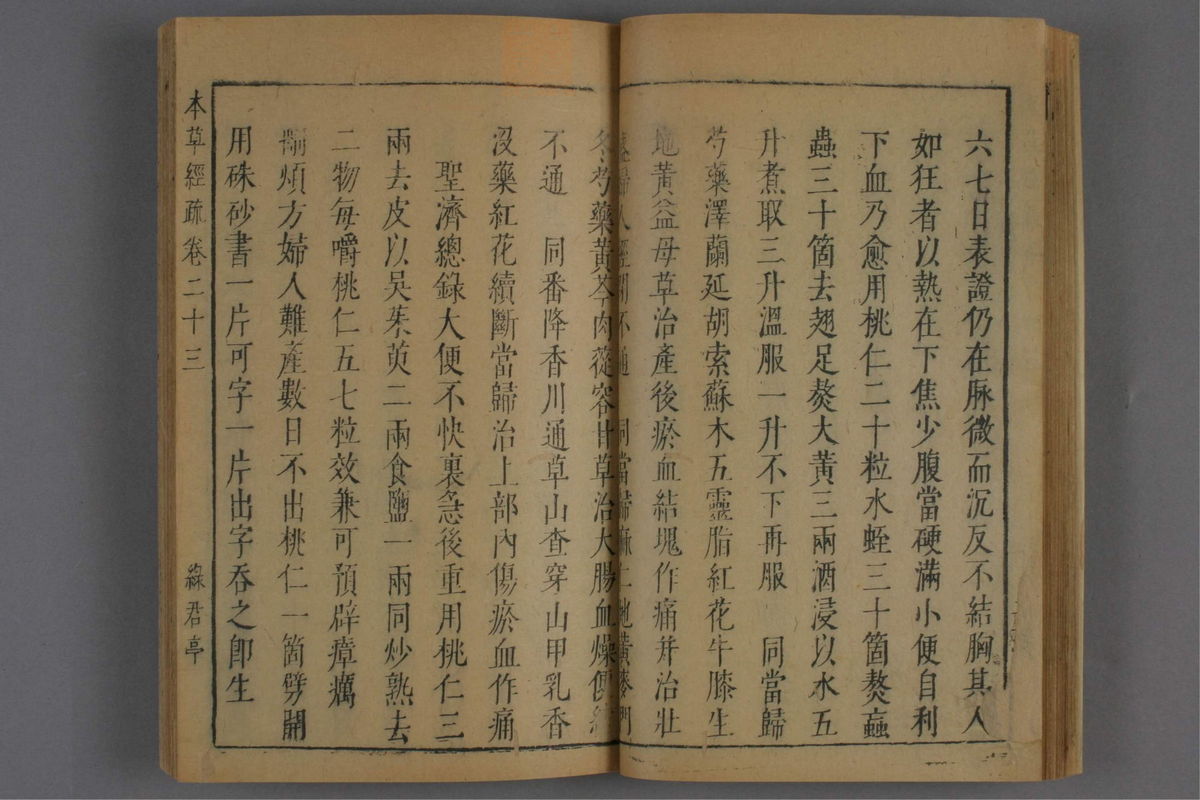 六七日表證仍在脉微而沉反不結胸其人
如狂者以熱在下焦少腹當硬滿小便自利
下血乃愈用桃仁二十粒水蛭三十箇熬蝱
蟲三十箇去翅足熬大黃三兩酒浸以水五
升煮取三升溫服一升不下再服　同當歸
芍藥澤蘭延胡索蘇木五靈脂紅花牛膝生
地黃益母草治產後瘀血結塊作痛并治壯
婦人經閉不通　同當歸麻仁地黃麥門
冬芍藥黃芩肉蓯容甘草治大腸血燥便結
不通　同番降香川通草山查穿山甲乳香
沒藥紅花續斷當歸治上部內傷瘀血作痛
聖濟總錄大便不快裏急後重用桃仁三
兩去皮以吳茱萸二兩食鹽一兩同炒熟去
二物每嚼桃仁五七粒效兼可預辟瘴癘
煩方婦人難產數日不出桃仁一箇劈開
用硃砂書一片可字一片出字吞之卽生
本草經疏卷二十三
綠君亭